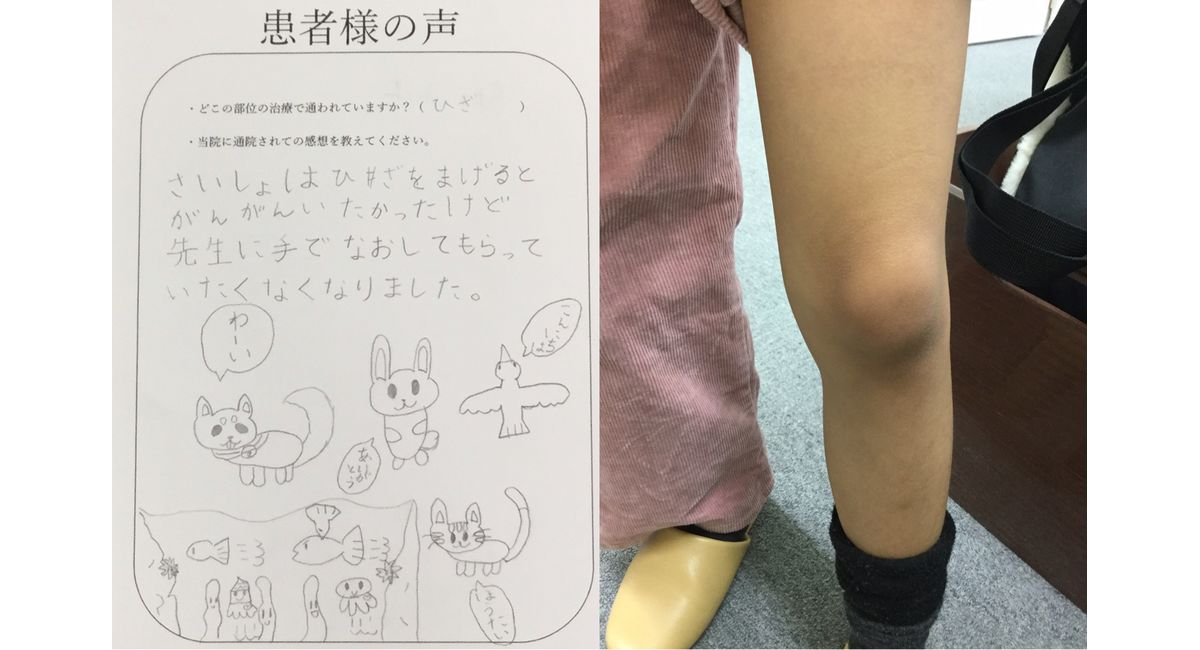 患者様の声
・どこの部位の治療で通われていますか？（ ひざ ）
・当院に通院されての感想を教えてください。
さいしょはひざをまげると
がんがんいたかったけど
先生に手でなおしてもらって
いたくなくなりました。
わーい
こんにちは
ありがとう